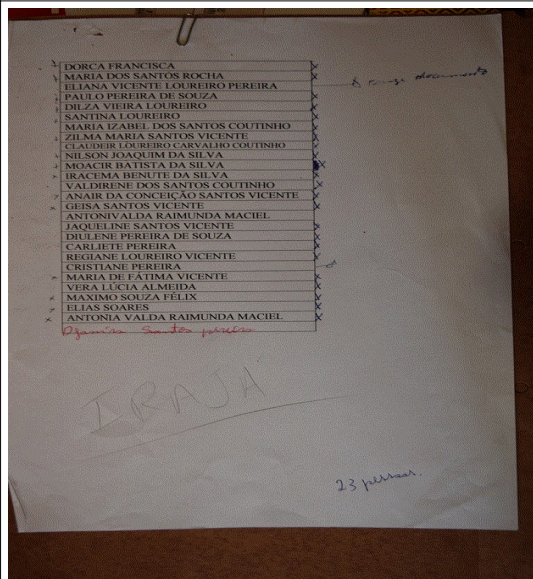 DORCA FRANCISCA
MARIA DOS SANTOS ROCHA
ELIANA VICENTE LOUREIRO PEREIRA
PAULO PEREIRA DE SOUZA
DILZA VIEIRA LOUREIRO
SANTINA LOUREIRO
MARIA IZABEL DOS SANTOS COUTINHO
ZILMA MARIA SANTOS VICENTE
CLAUDEIR LOUREIRO CARVALHO COUTINHO
NILSON JOAQUIM DA SILVA
MOACIR BATISTA DA SILVA
IRACEMA BENUTE DA SILVA
VALDIRENE DOS SANTOS COUTINHO
ANAIR DA CONCEIÇÃO SANTOS VICENTE
GEISA SANTOS VICENTE
ANTONIVALDA RAIMUNDA MACIEL
JAQUELINE SANTOS VICENTE
DIULENE PEREIRA DE SOUZA
CARLIETE PEREIRA
REGIANE LOUREIRO VICENTE
CRISTIANE PEREIRA
MARIA DE FÁTIMA VICENTE
VERA LÚCIA ALMEIDA
MAXIMO SOUZA FÉLIX
ELIAS SOARES
ANTONIA VALDA RAIMUNDA MACIEL
Santos pereira
IRAJÁ
23 pessoas.